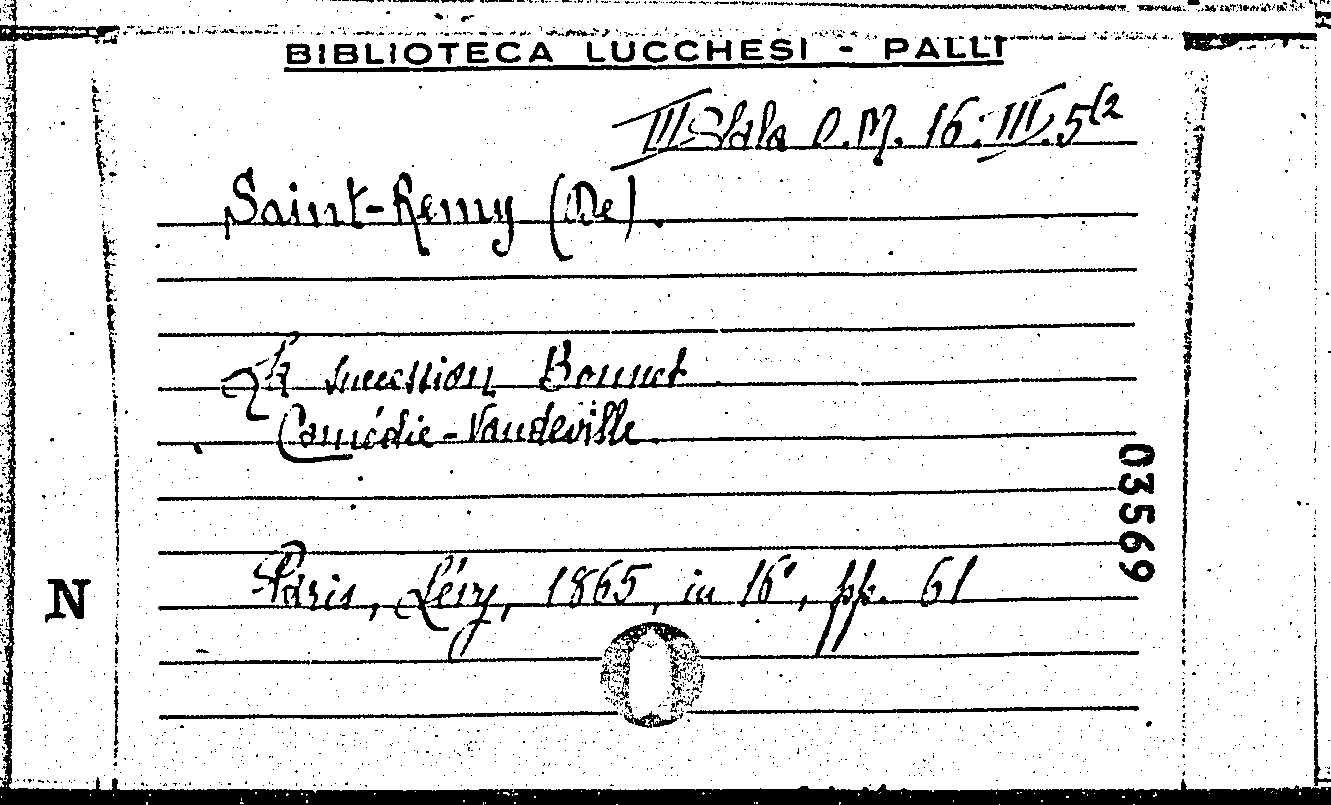 BIBLIOTECA LUCCHESI - PALLI
III Sala O.M. 16.III.5(2
Saint-Remy (De).
La succession Bonnet
Comédie-Vaudeville.
03569
Paris, Lévy, 1865, in 16°, pp. 61
N